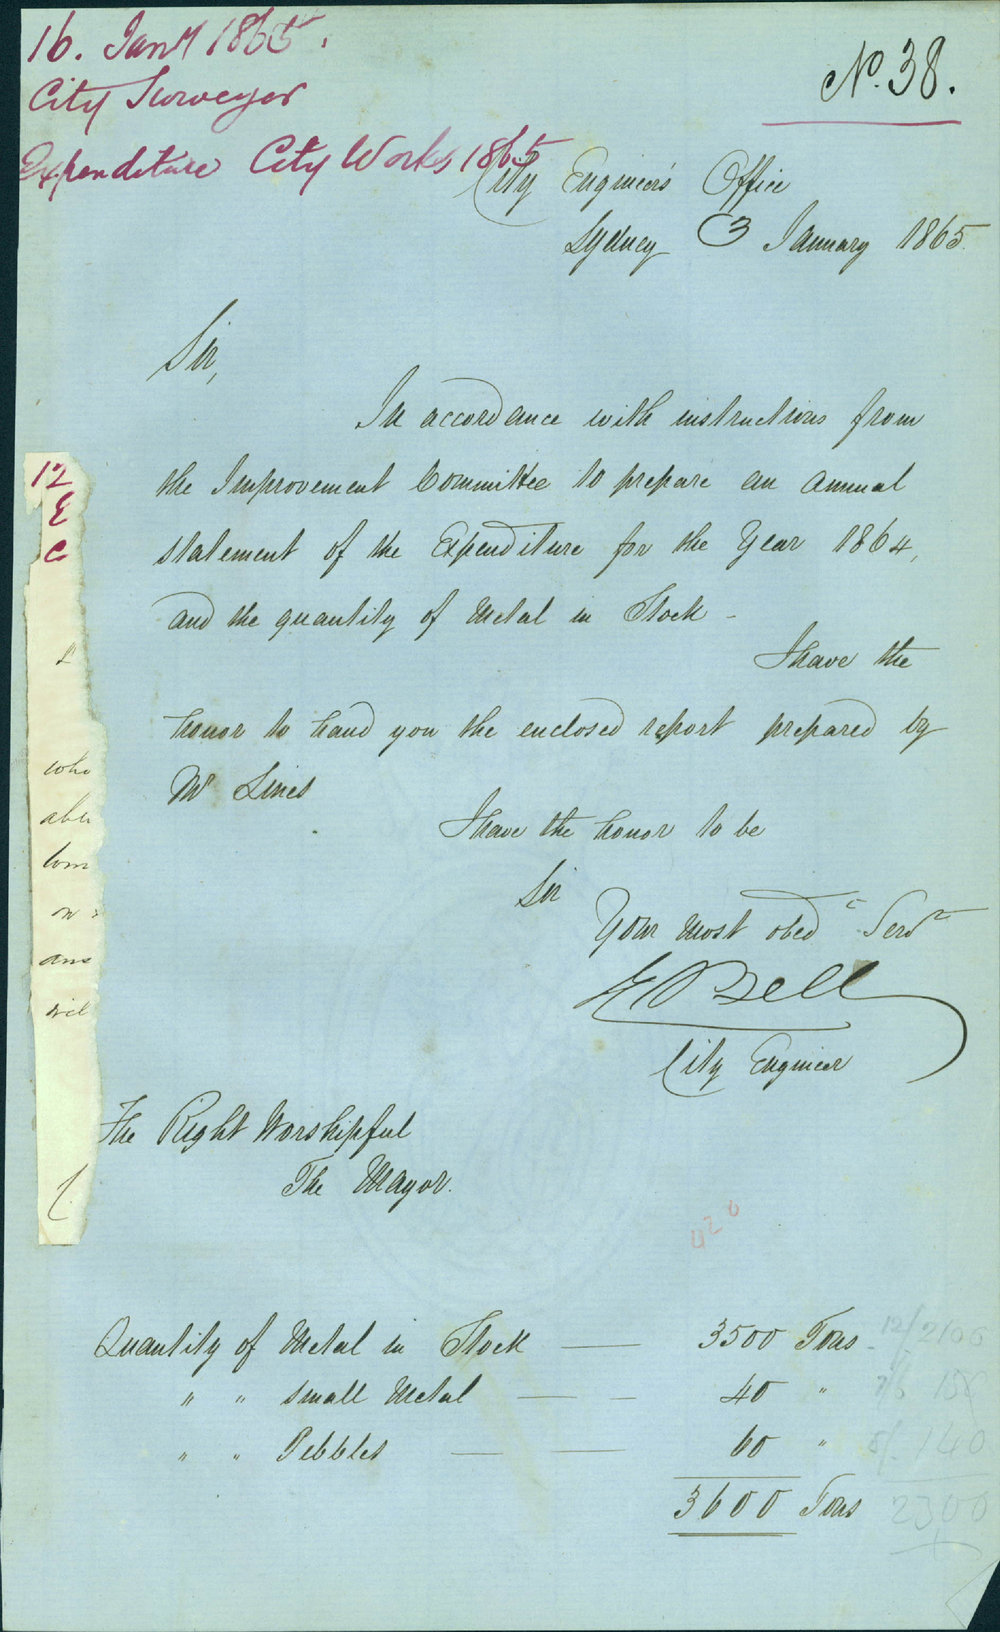 16. Jany 1865.
City Surveyor
Expenditure City Works 1865
No. 38.
City Engineers Office
Sydney 3 January 1865.
Sir,
In accordance with instructions from
the Improvement Committee to prepare an annual
statement of the Expenditure for the Year 1864,
and the quantity of Metal in Stock -
I have the
honor to hand you the enclosed report prepared by
Mr Lines
I have the honor to be
Sir
Your most obed Servt
E Bell
City Engineer
The Right Worshipful
The Mayor.
12
E
C
who
on
ans
420
Quantity of Metal in Stock — 3500 Tons
" " small Metal — — 40 "
" " Pebbles — — 60 "
3600 Tons
2300